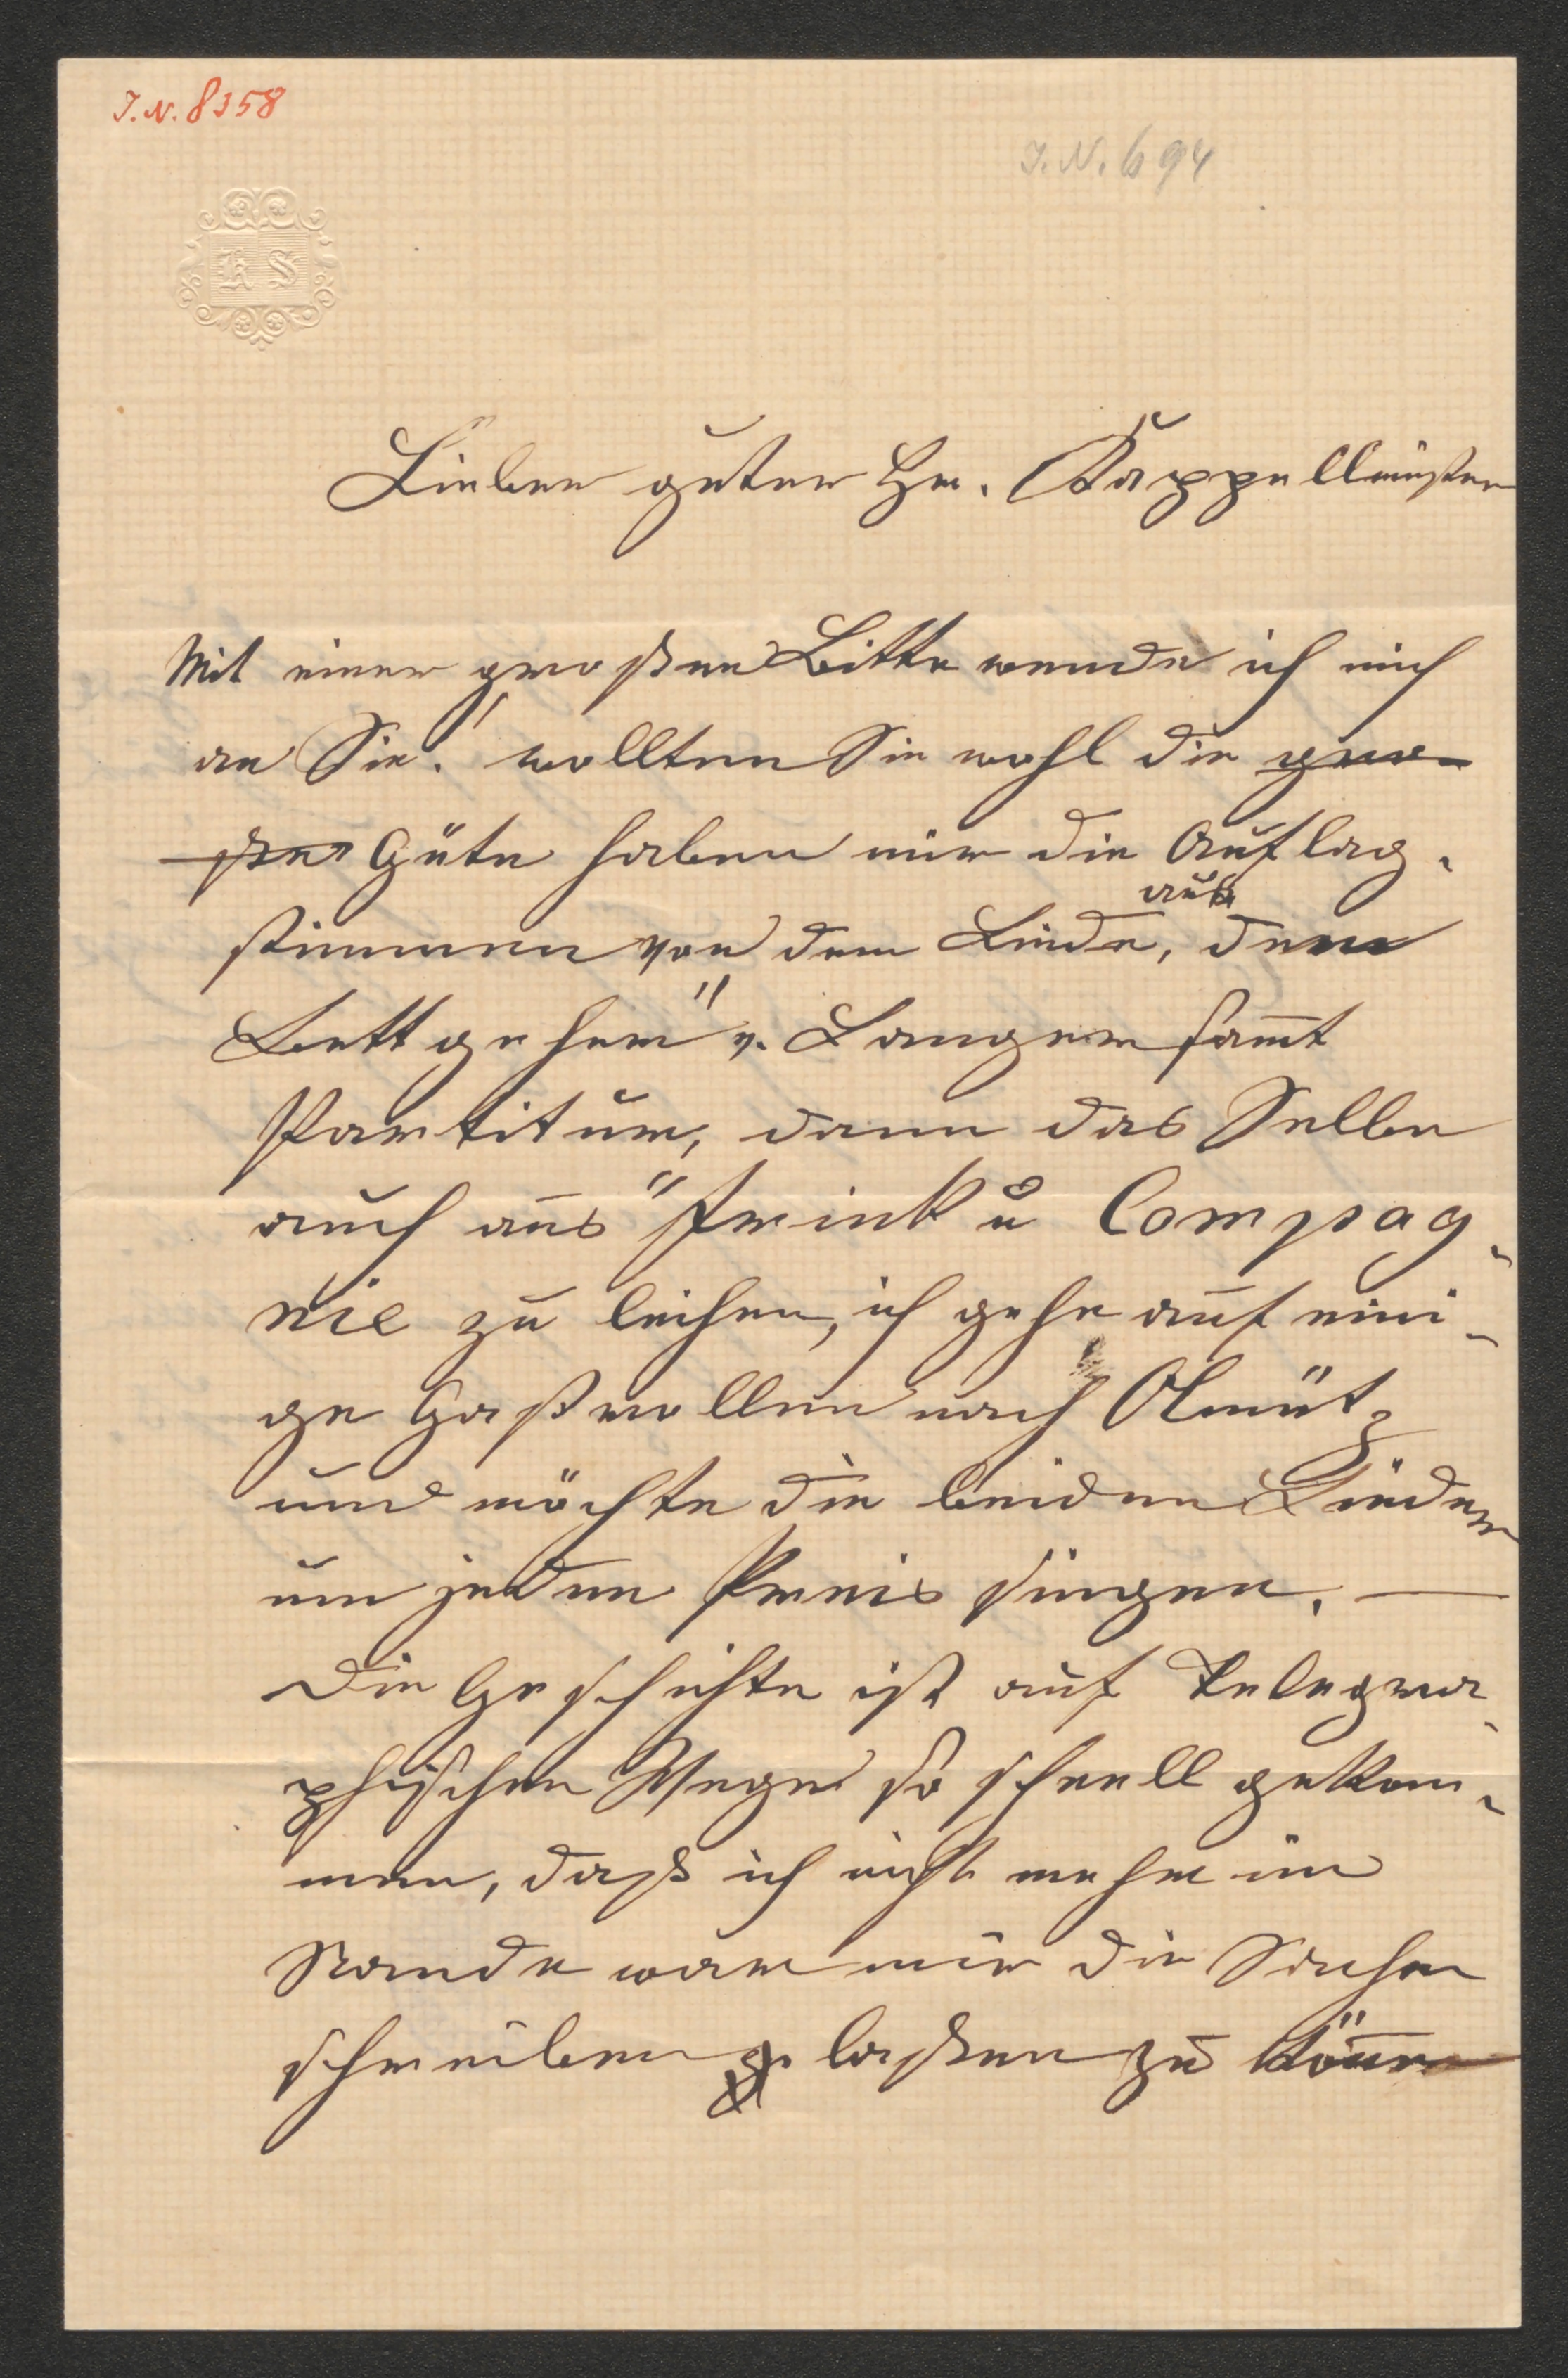 J.N. 8358
J.N. 694
K S
Lieber guter Hr. Kappellmeister
Mit einer großen Bitte wende ich mich
an Sie! wollten Sie wohl die gro-
ßes Güte haben mir die Auflag-
aus
stimmen von dem Liede, dem
Bettgeher" v. Langer samt
Partitur, dann das Selbe
auch aus "Frink u Compag-
nie zu leihen, ich gehe auf eini-
ge Gastrollen nach Olmütz
und möchte die beiden Lieder
um jeden Preis singen. —
Die Geschichte ist auf Telegra-
phischen Wege so schnell gekom-
men, daß ich nicht mehr im
Stande war mir die Sachen
schreiben lassen zu können